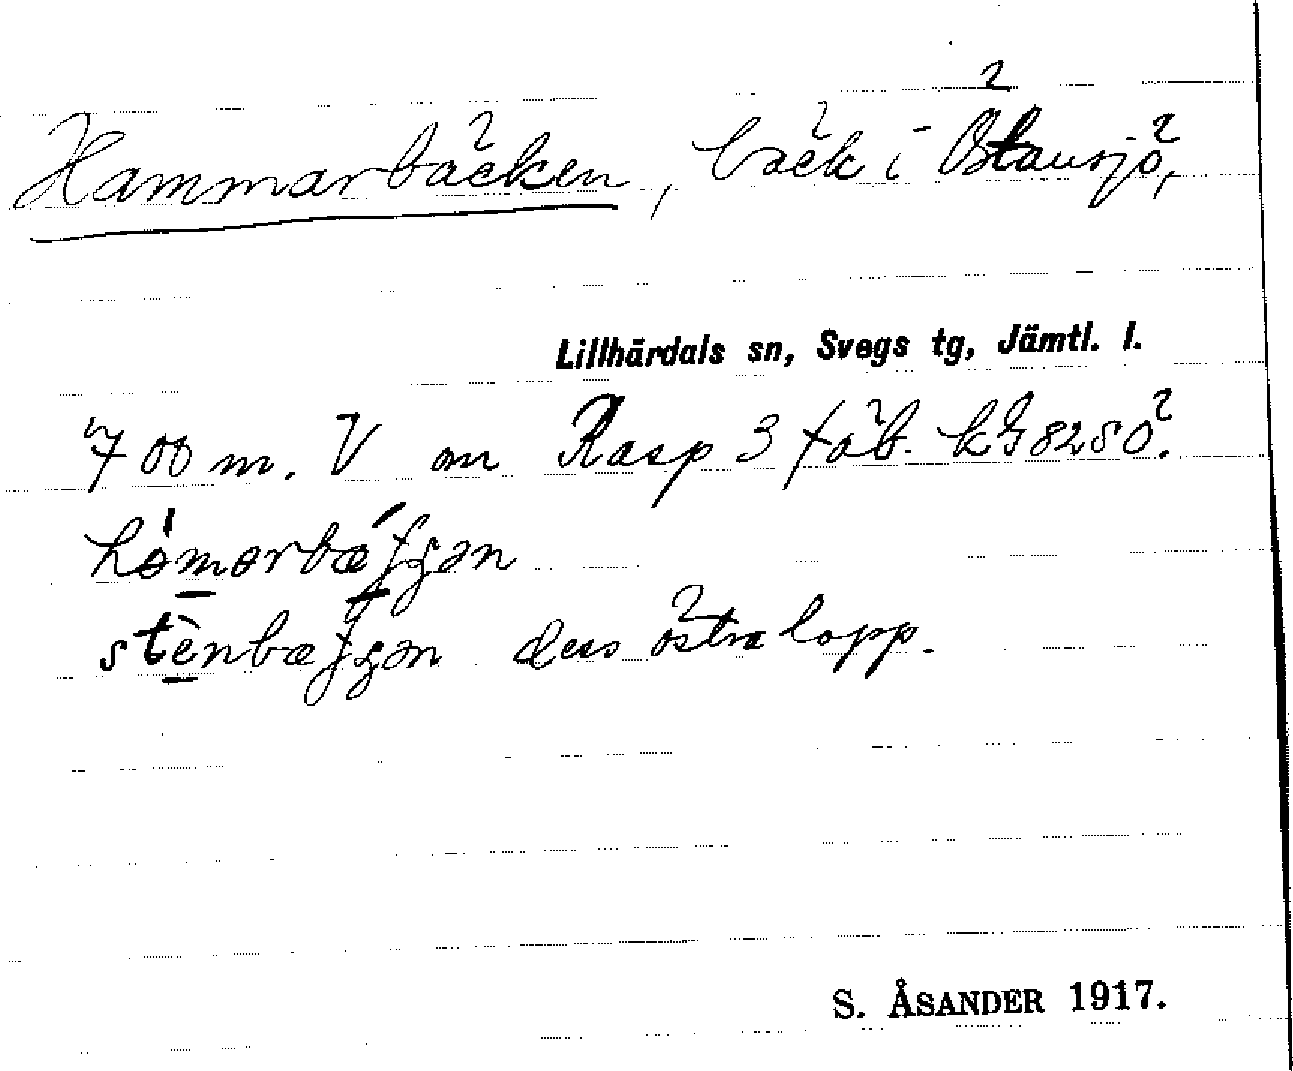 Hammarbäcken, bäck i Östansjö,
Lillhärdals sn, Svegs tg, Jämtl. l.
700 m. V om Rasp 3 fäb.
stènbæʃʃən dess östra lopp.
S. ÅSANDER 1917.